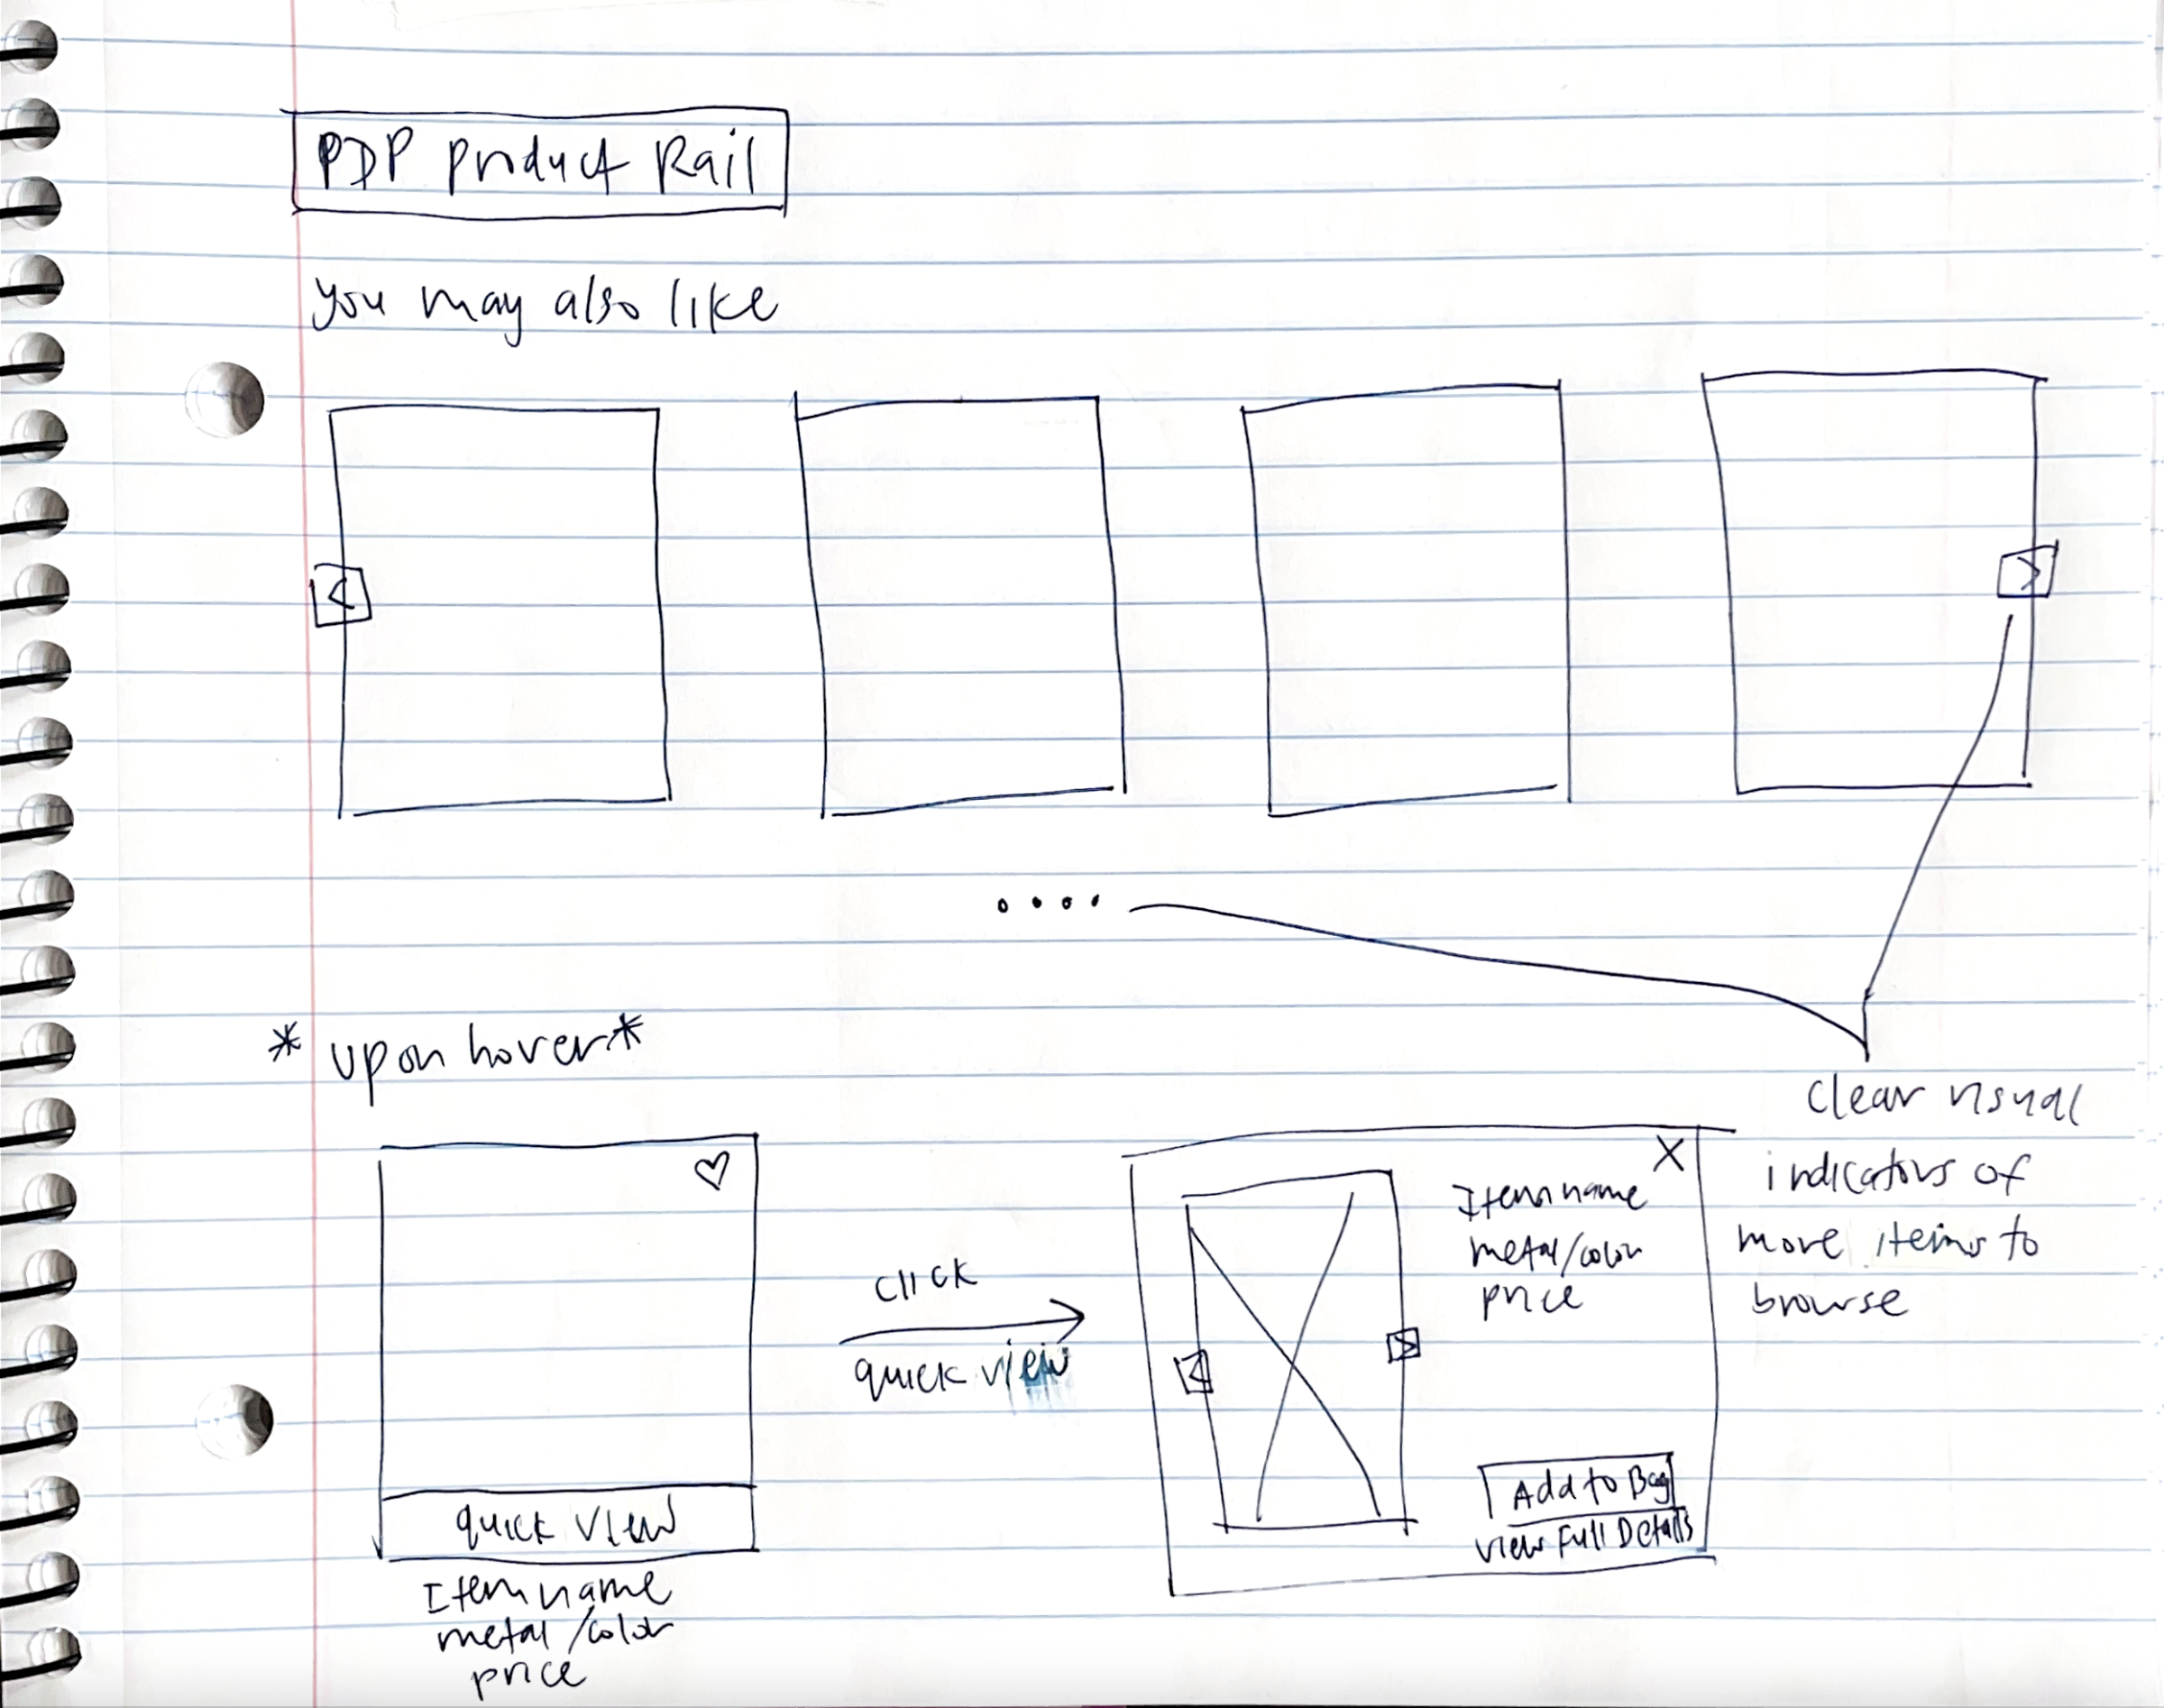 PDP Product Rail
you may also like
<
>
....
* upon hover *
clear visual
indicators of
more items to
browse
♡
quick view
Item name
metal/color
price
click
quick view
X
Item name
metal/color
price
<
>
Add to Bag
view Full Details